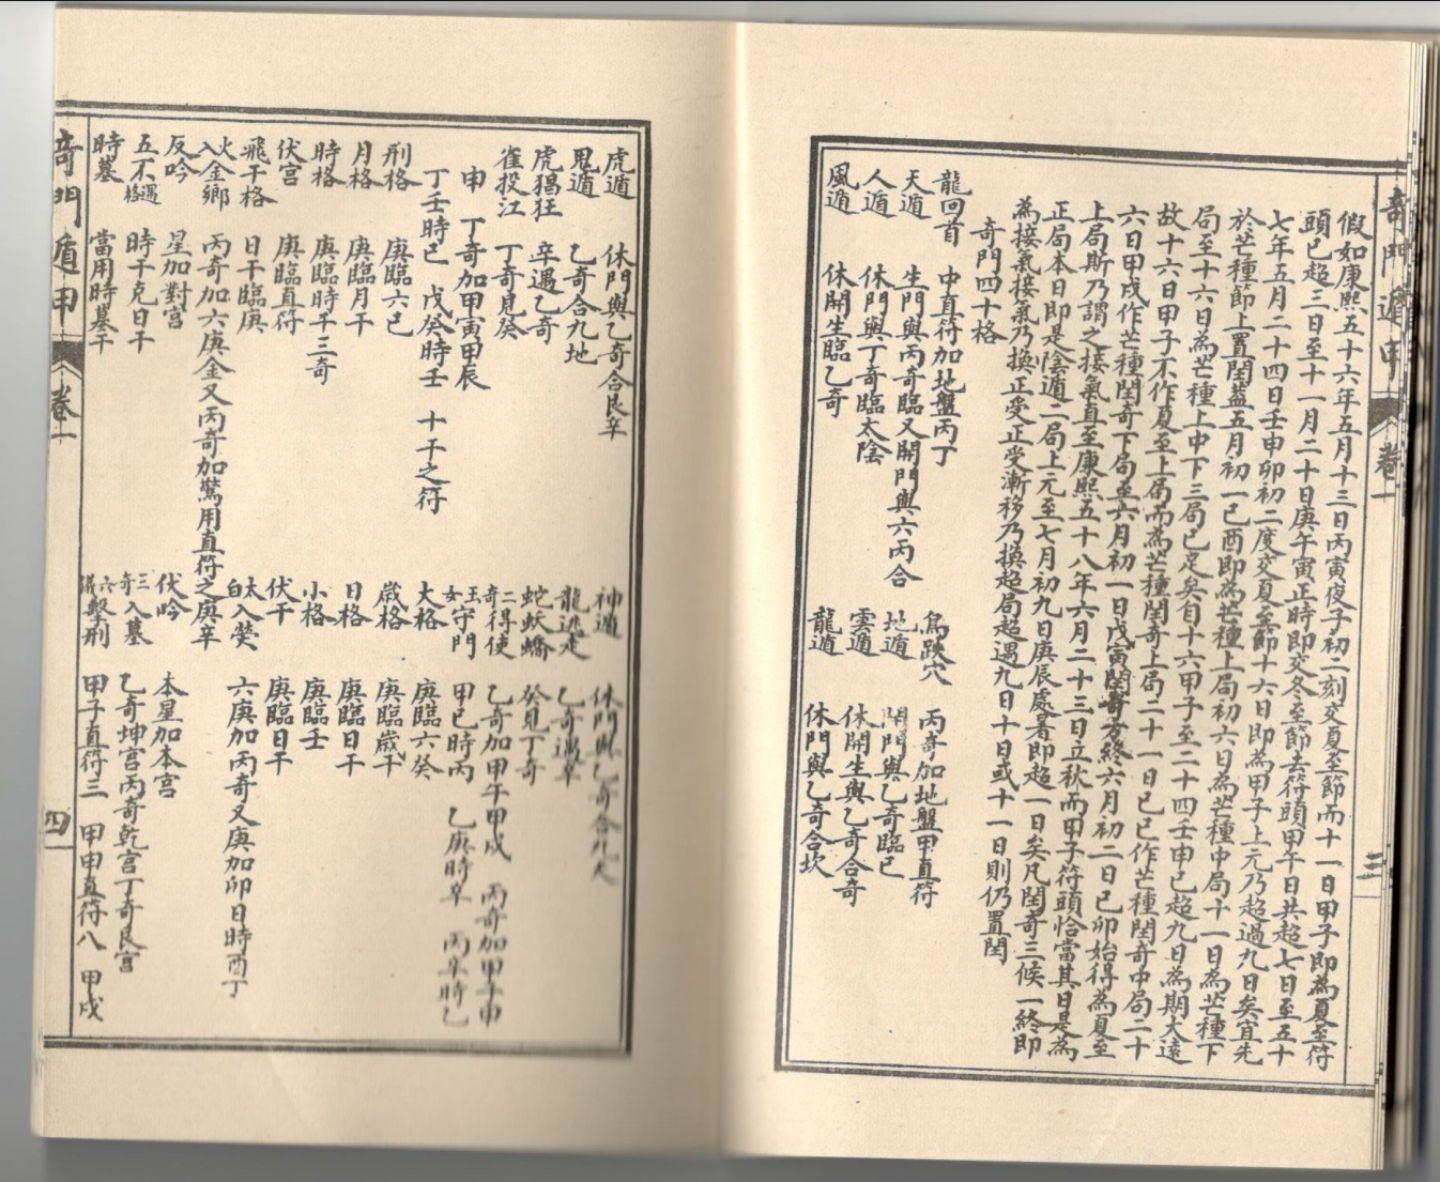 奇門遁甲 卷一 三
假如康熙五十六年五月十三日丙寅夜子初二刻交夏至節而十一日甲子即為夏至符
頭已超三日至十一月二十日庚午寅正時即交冬至節去符頭甲午日共超七日至五十
七年五月二十四日壬申卯初二度交夏至節十六日即為甲子上元乃超過九日矣宜先
於芒種節上置閏蓋五月初一己酉即為芒種上局初六日為芒種中局十一日為芒種下
局至十六日為芒種上中下三局已足矣自十六甲子至二十四壬申已超九日為期大遠
故十六日甲子不作夏至上局而為芒種閏奇上局二十一日己巳作芒種閏奇中局二十
六日甲戌作芒種閏奇下局至六月初一日戊寅閏奇方終六月初二日己卯始得為夏至
上局斯乃謂之接氣直至康熙五十八年六月二十三日立秋而甲子符頭恰當其日是為
正局本日即是陰遁二局上元至七月初九日庚辰處暑即超一日矣凡閏奇三候一終即
為接氣接氣乃換正受正受漸移乃換超局超遇九日十日或十一日則仍置閏
奇門四十格
龍回首 中直符加地盤丙丁 鳥跌穴 丙奇加地盤甲直符
天遁 生門與丙奇臨又開門與六丙合 地遁 開門與乙奇臨已
人遁 休門與丁奇臨太陰 雲遁 休開生與乙奇合奇
風遁 休開生臨乙奇 龍遁 休門與乙奇合坎
虎遁 休門與乙奇合艮辛 神遁 休門與乙奇合九天
鬼遁 乙奇合九地 龍逃走 乙奇遇辛
虎猖狂 辛遇乙奇 蛇妖矯 癸見丁奇
雀投江 丁奇見癸 二奇得使 乙奇加甲午甲戌 丙奇加甲子申
申 丁奇加甲寅甲辰 玉女守門 甲已時丙 乙庚時辛 丙辛時乙
丁壬時已 戊癸時壬 十干之符 大格 庚臨六癸
刑格 庚臨六己 歲格 庚臨歲干
月格 庚臨月干 日格 庚臨日干
時格 庚臨時干三奇 小格 庚臨壬
伏宮 庚臨直符 伏干 庚臨日干
飛干格 日干臨庚 太白入熒 六庚加丙奇又庚加卯日時酉丁
火入金鄉 丙奇加六庚金又丙奇加驚用直符之庚辛
反吟 星加對宮 伏吟 本星加本宮
五不遇格 時干克日干 三奇入墓 乙奇坤宮丙奇乾宮丁奇艮宮
時墓 當用時墓干 六儀擊刑 甲子直符三 甲申直符八 甲戌
奇門遁甲 卷一 四